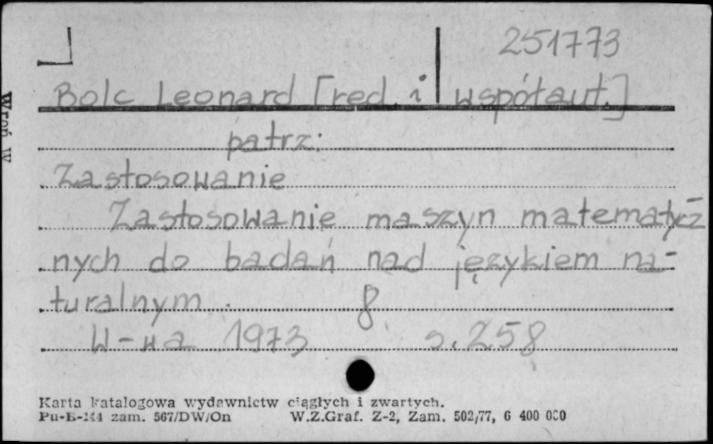 251773
Bolc Leonard [red. i współaut.]
patrz:
Zastosowanie
Zastosowanie maszyn matematycz-
nych do badań nad językiem na-
turalnym. 8
W-wa 1973 s. 258
Karta katalogowa wydawnictw ciągłych i zwartych.
zam. 567/DW/On W.Z.Graf. Z-2, Zam. 502/77, 6 400 000